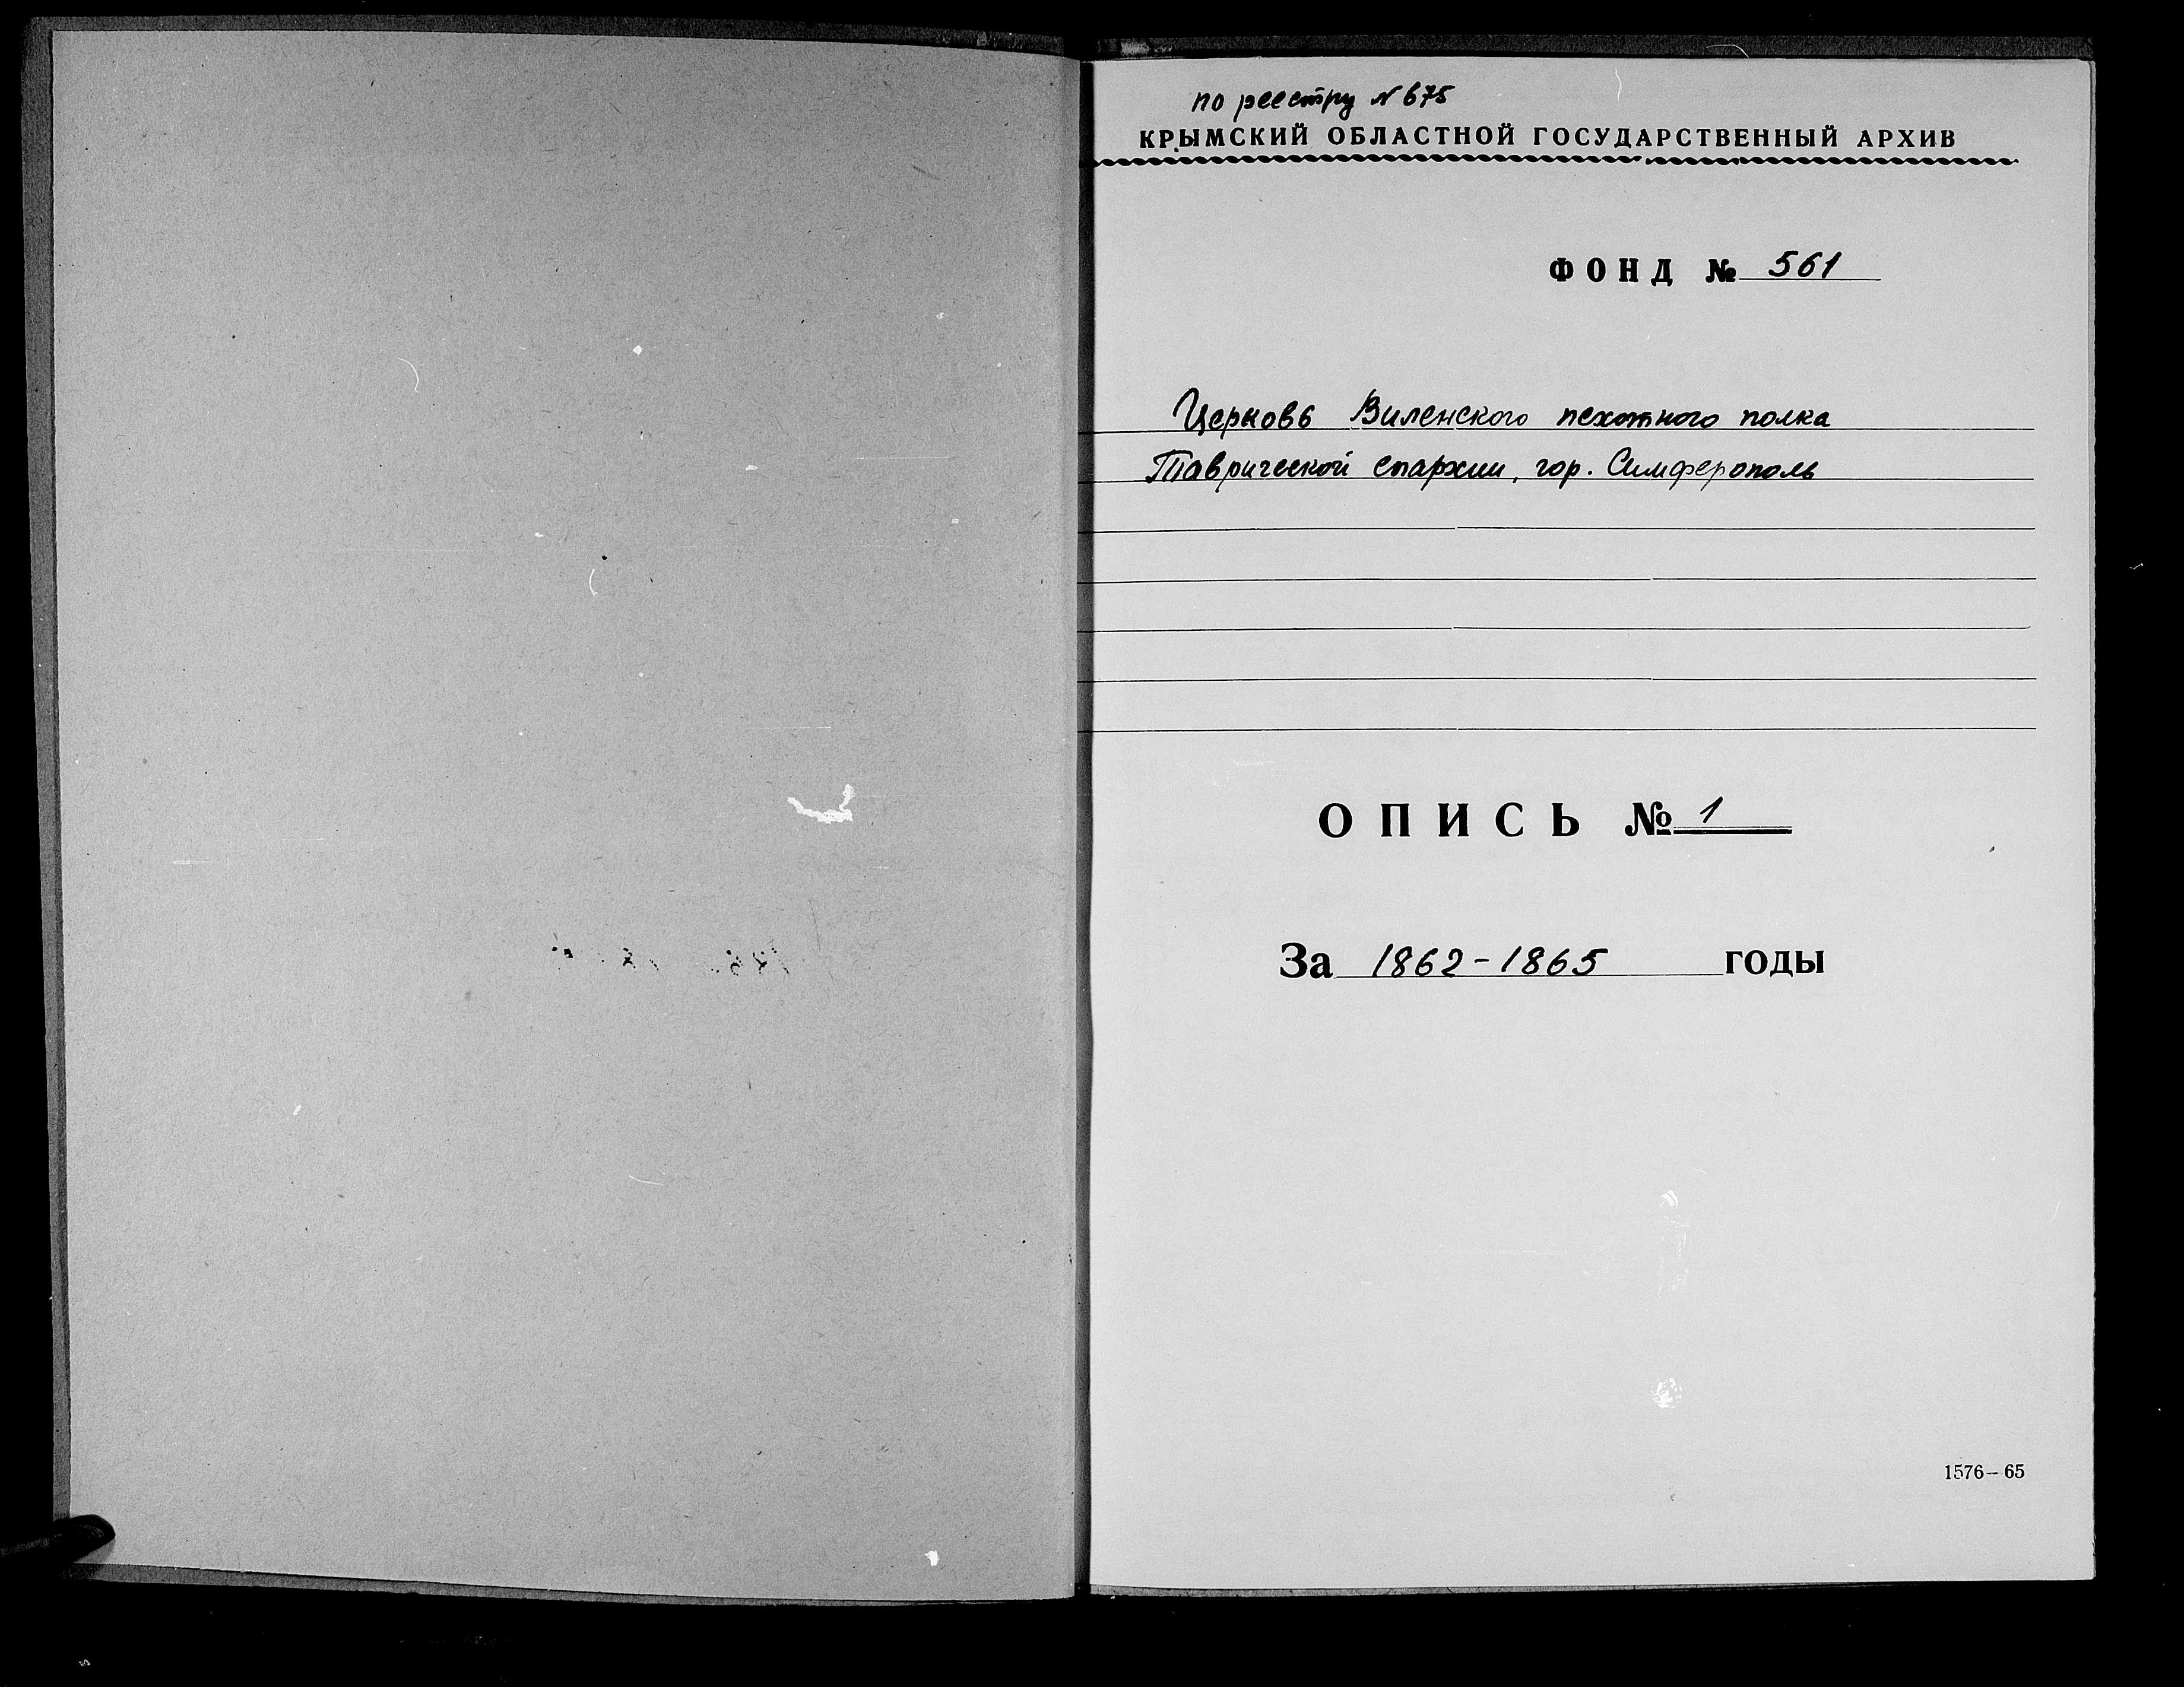 по реестру N 675
КРЫМСКИЙ ОБЛАСТНОЙ ГОСУДАРСТВЕННЫЙ АРХИВ
ФОНД № 561
Церковь Виленского пехотного полка
Таврической епархии, гор. Симферополь
ОПИСЬ № 1
За 1862-1865 годы
1576-65